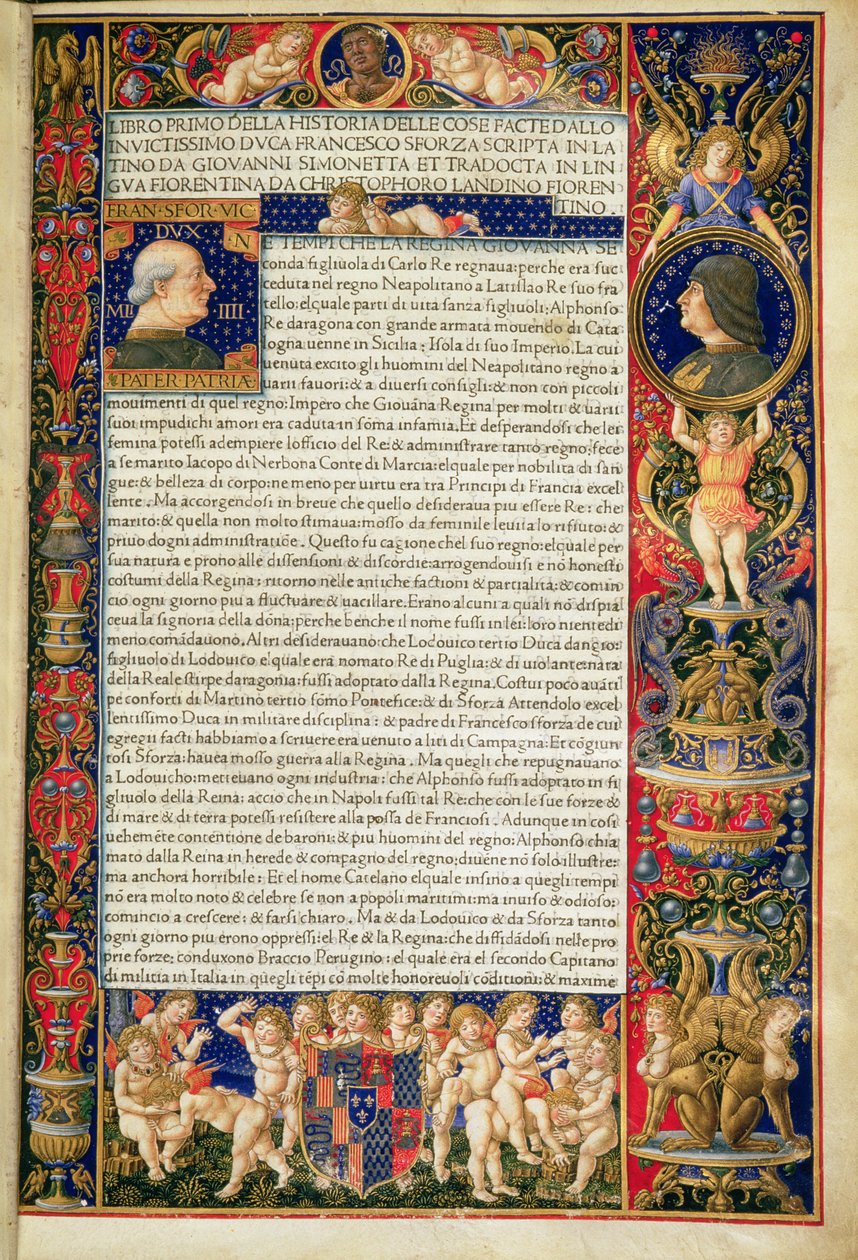 LIBRO PRIMO DELLA HISTORIA DELLE COSE FACTE DALLO
INVICTISSIMO DVCA FRANCESCO SFORZA SCRIPTA IN LA
TINO DA GIOVANNI SIMONETTA ET TRADOCTA IN LIN
GVA FIORENTINA DA CHRISTOPHORO LANDINO FIOREN
TINO.
FRAN·SFOR·VIC
DVX
N
MLI IIII
PATER·PATRIÆ
E TEMPI CHE LA REGINA GIOVANNA SE
conda figliuola di Carlo Re regnaua:perche era suc
ceduta nel regno Neapolitano a Latislao Re suo fra
tello:elquale parti di uita sanza figliuoli:Alphonso
Re daragona con grande armata mouendo di Cata
logna uenne in Sicilia: Isola di suo Imperio.La cui
uenuta excito gli huomini del Neapolitano regno a
uarii fauori:& a diuersi consigli:& non con piccoli
mouimenti di quel regno:Impero che Giouãna Regina per molti & uarii
suoi impudichi amori era caduta in sõma infamia.Et desperandosi che lei
femina potessi adempiere lofficio del Re:& administrare tanto regno:fece
a se marito Iacopo di Nerbona Conte di Marcia:elquale per nobilita di san
gue:& belleza di corpo:ne meno per uirtu era tra Principi di Francia excel
lente. Ma accorgendosi in breue che quello desideraua piu essere Re: che
marito:& quella non molto stimaua:mosso da feminile leuita lo rifiuto:&
priuo dogni administratiõe. Questo fu cagione chel suo regno:elquale per
sua natura e prono alle dissensioni & discordie:arrogendouisi e nõ honesti
costumi della Regina: ritorno nelle antiche factioni & partialita:& comin
cio ogni giorno piu a fluctuare & uacillare.Erano alcuni a quali nõ dispia
ceua la signoria della dõna:perche benche il nome fussi in lei:loro nientedi
meno comãdauono.Altri desiderauano:che Lodouico tertio Duca dangio:
figliuolo di Lodouico elquale era nomato Re di Puglia:& di uiolante nata
della Reale stirpe daragonia:fussi adoptato dalla Regina.Costui poco auãti
pe conforti di Martino tertio sõmo Pontefice:& di Sforza Attendolo excel
lentissimo Duca in militare disciplina: & padre di Francesco sforza de cui
egregii facti habbiamo a scriuere era uenuto a liti di Campagna:Et cõgiun
tosi Sforza:hauea mosso guerra alla Regina. Ma quegli che repugnauano
a Lodouicho:metteuano ogni industria: che Alphonso fussi adoptato in fi
gliuolo della Reina: accio che in Napoli fussi tal Re:che con le sue forze &
di mare & di terra potessi resistere alla possa de Franciosi. Adunque in cosi
uehemẽte contentione de baroni:& piu huomini del regno:Alphonso chia
mato dalla Reina in herede & compagno del regno:diuẽne nõ solo illustre:
ma anchora horribile: Et el nome Catelano elquale insino a quegli tempi
nõ era molto noto & celebre se non a popoli maritimi:ma inuiso & odioso:
comincio a crescere: & farsi chiaro. Ma & da Lodouico & da Sforza tanto
ogni giorno piu erono oppressi:el Re & la Regina:che diffidãdosi nelle pro
prie forze: conduxono Braccio Perugino: el quale era el secondo Capitano
di militia in Italia in quegli tẽpi cõ molte honoreuoli cõditioni:& maxime